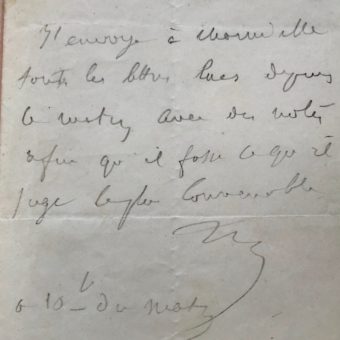 J'envoye à
toutes les lettres lues depuis
ce matin avec des notes
afin qu'il fasse ce qu'il
juge le plus convenable
à 10 h du matin